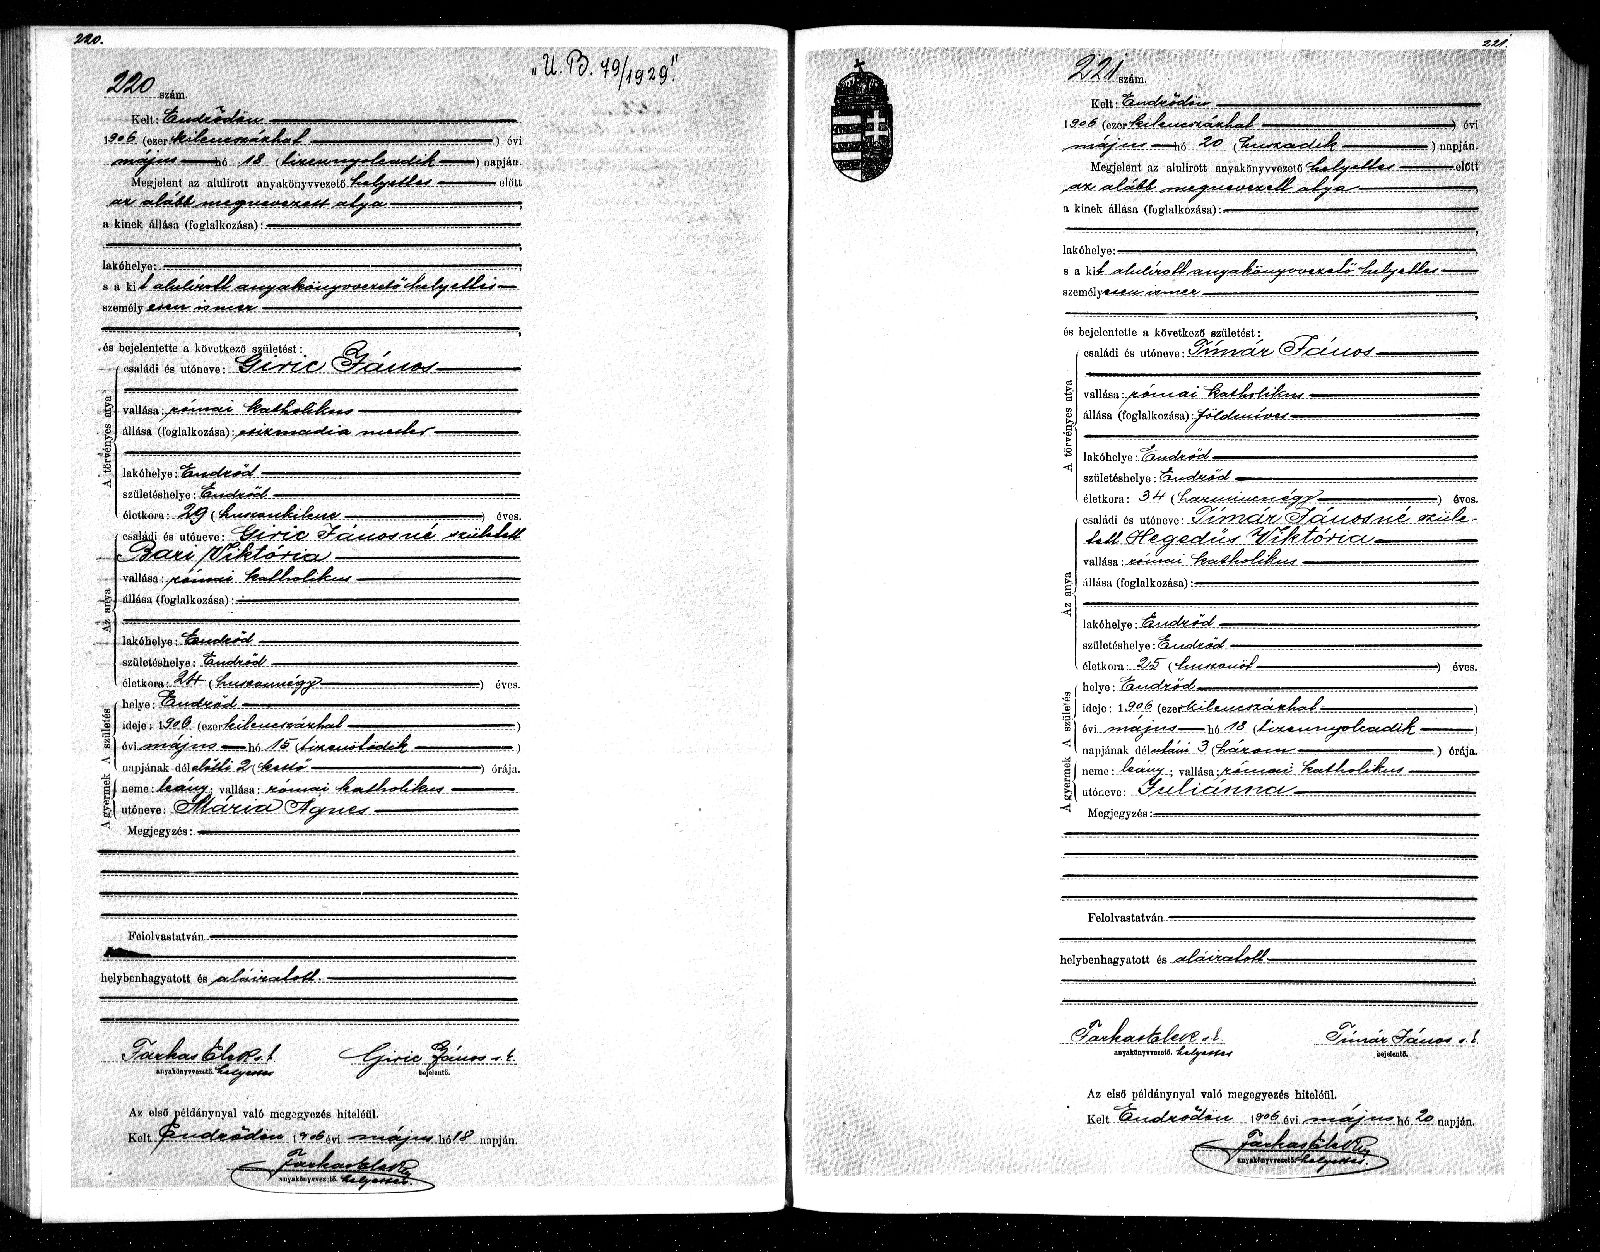 220.
220 szám.
„U. B. 79/1929."
Kelt: Endrődön
1906 (ezerkilencszázhat) évi
május hó 18 (tizennyolcadik) napján.
Megjelent az alulirott anyakönyvvezető helyettes előtt
az alább megnevezett atya,
a kinek állása (foglalkozása):
lakóhelye:
s a kit alulírott anyakönyvvezető helyettes
személyesen ismer
és bejelentette a következő születést:
A törvényes atya
családi és utóneve: Giric János
vallása: római katholikus
állása (foglalkozása): csizmadia mester
lakóhelye: Endrőd
születéshelye: Endrőd
életkora: 29 (huszonkilenc) éves.
Az anya
családi és utóneve: Giric Jánosné született
Bari Viktória
vallása: római katholikus
állása (foglalkozása):
lakóhelye: Endrőd
születéshelye: Endrőd
életkora: 24 (huszonnégy) éves.
A születés
helye: Endrőd
ideje: 1906 (ezerkilencszázhat)
évi május hó 15 (tizenötödik)
napjának délelőtti 2 (kettő) órája.
A gyermek
neme: leány; vallása: római katholikus
utóneve: Mária Ágnes
Megjegyzés:
Felolvastatván
helybenhagyatott és aláiratott.
Farkas Elek s. k. Giric János s. k.
anyakönyvvezető. helyettes bejelentő.
Az első példánynyal való megegyezés hiteléül.
Kelt Endrődön 1906 évi május hó 18 napján.
Farkas Elek
anyakönyvvezető. helyettes.
221.
221 szám.
Kelt: Endrődön
1906 (ezerkilencszázhat) évi
május hó 20 (huszadik) napján.
Megjelent az alulirott anyakönyvvezető helyettes előtt
az alább megnevezett atya,
a kinek állása (foglalkozása):
lakóhelye:
s a kit alulírott anyakönyvvezető helyettes
személyesen ismer
és bejelentette a következő születést:
A törvényes atya
családi és utóneve: Tímár János
vallása: római katholikus
állása (foglalkozása): földmíves
lakóhelye: Endrőd
születéshelye: Endrőd
életkora: 34 (harmincnégy) éves.
Az anya
családi és utóneve: Tímár Jánosné szüle-
tett Hegedűs Viktória
vallása: római katholikus
állása (foglalkozása):
lakóhelye: Endrőd
születéshelye: Endrőd
életkora: 25 (huszonöt) éves.
A születés
helye: Endrőd
ideje: 1906 (ezerkilencszázhat)
évi május hó 18 (tizennyolcadik)
napjának délutáni 3 (három) órája.
A gyermek
neme: leány; vallása: római katholikus
utóneve: Juliánna
Megjegyzés:
Felolvastatván
helybenhagyatott és aláiratott
Farkas Elek s. k. Tímár János s. k.
anyakönyvvezető. helyettes bejelentő.
Az első példánynyal való megegyezés hiteléül.
Kelt Endrődön 1906 évi május hó 20 napján.
Farkas Elek
anyakönyvvezető. helyettes.